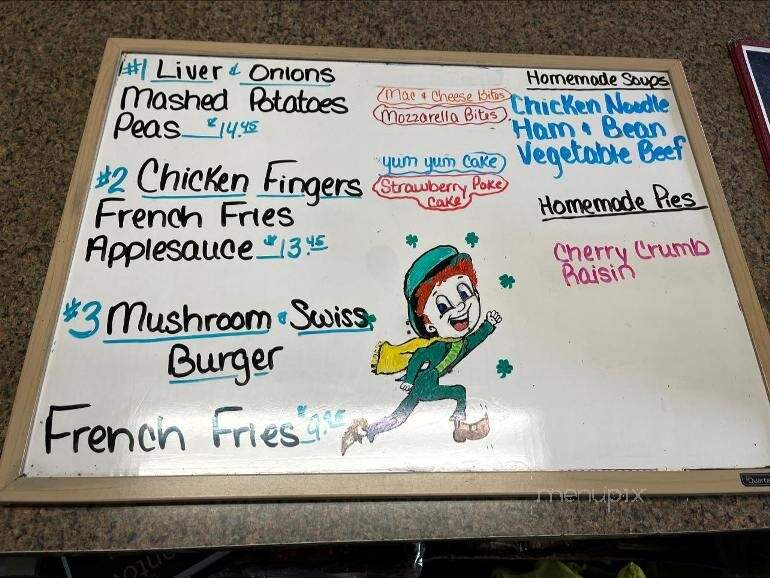 #1 Liver & Onions
Mashed Potatoes
Peas $14.45
#2 Chicken Fingers
French Fries
Applesauce $13.45
#3 Mushroom & Swiss
Burger
French Fries $9.95
Mac & Cheese Bites
Mozzarella Bites
yum yum cake
Strawberry Poke
cake
Homemade Soups
Chicken Noodle
Ham & Bean
Vegetable Beef
Homemade Pies
Cherry Crumb
Raisin
menupix